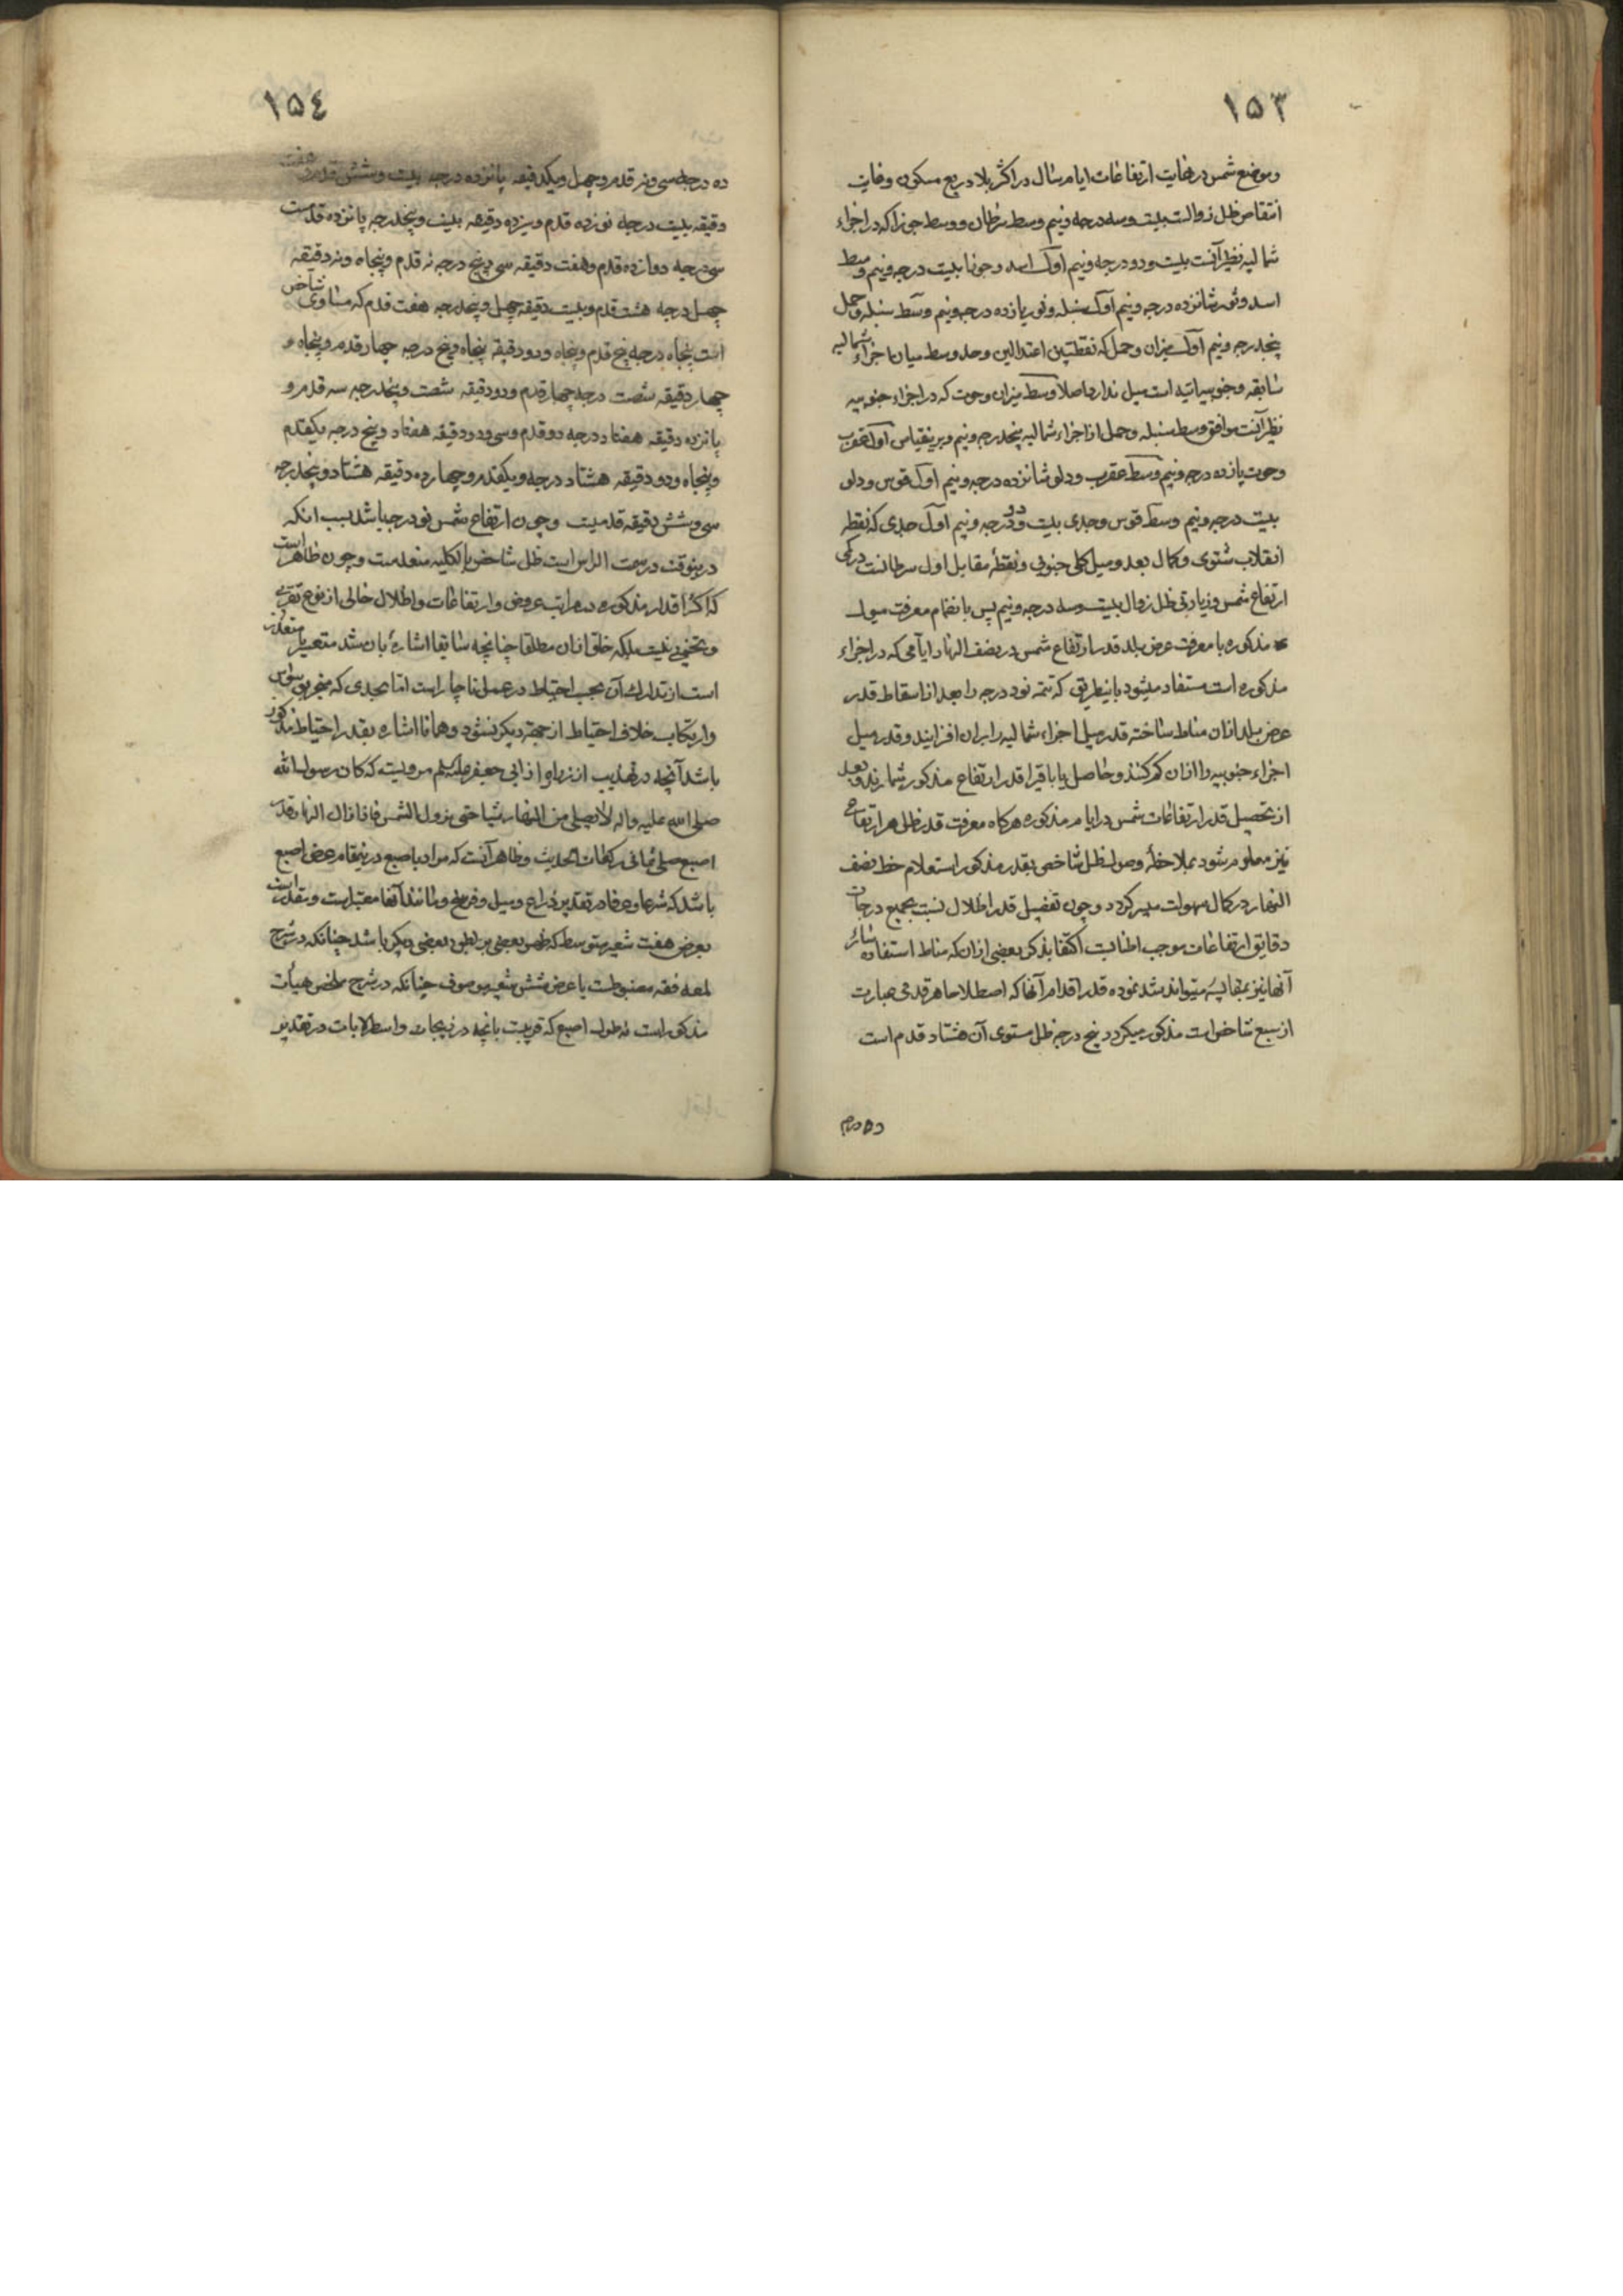 ۱۵۳
وموضع شمس در نهایت ارتفاعات ایام سال در اکثر بلاد ربع مسکون وغایت
انتقاص ظل زوالست بیست وسه درجه ونیم وسط سرطان ووسط جوزا که در اجزاء
شمالیه نظیر آنست بیست ودو درجه ونیم اول اسد وجوزا بیست درجه ونیم وسط
اسد وثور شانزده درجه ونیم اول سنبله وثور یازده درجه ونیم وسط سنبله وحمل
پنجدرجه ونیم اول میزان وحمل که نقطتین اعتدالین وحد وسط میان اجزاء شمالیه
سابقه وجنوبیه آتیه است میل ندارد اصلا وسط میزان وحوت که در اجزاء جنوبیه
نظیر آنست موافق وسط سنبله وحمل از اجزاء شمالیه پنجدرجه ونیم وبرینقیاس اول عقرب
وحوت یازده درجه ونیم وسط عقرب ودلو شانزده درجه ونیم اول قوس ودلو
بیست درجه ونیم وسط قوس وجدی بیست ودو درجه ونیم اول جدی که نقطه
انقلاب شتوی وکمال بعد ومیل کلی جنوبی ونقطه مقابل اول سرطانست در کمی
ارتفاع شمس وزیادتی ظل زوال بیست وسه درجه ونیم پس بانضمام معرفت میول
مذکوره با معرفت عرض بلد قدر ارتفاع شمس در نصف النهار ایامی که در اجزاء
مذکوره است مستفاد میشود باینطریق که تتمه نود درجه را بعد از اسقاط قدر
عرض بلد ازان مناط ساخته قدر میل اجزاء شمالیه را بران افزایند وقدر میل
اجزاء جنوبیه را ازان کم کنند وحاصل یا باقیرا قدر ارتفاع مذکور شمارند وبعد
از تحصیل قدر ارتفاعات شمس در ایام مذکوره هرگاه معرفت قدر ظل هر ارتفاعی
نیز معلوم شود بملاحظه وصول ظل شاخص بقدر مذکور استعلام خط نصف
النهار در کمال سهولت میسر گردد وچون تفصیل قدر اظلال نسبت بجمیع درجات
دقایق ارتفاعات موجب اطنابست اکتفا بذکر بعضی ازان که مناط استفاده سائر
آنها نیز بمقایسه میتواند شد نموده قدر اقدام آنها که اصطلاحا هر قدمی عبارت
از سبع شاخص است مذکور میگردد پنج درجه ظل مستوی آن هشتاد قدم است
ده درجه
۱۵۴
ده درجه سی ونه قدم وچهل ویکدقیقه پانزده درجه بیست وشش قدم وهفت
دقیقه بیست درجه نوزده قدم وسیزده دقیقه بیست وپنجدرجه پانزده قدمست
سی درجه دوازده قدم وهفت دقیقه سی وپنج درجه نه قدم وپنجاه ونه دقیقه
چهل درجه هشت قدم وبیست دقیقه چهل وپنجدرجه هفت قدم که مساوی شاخص
است پنجاه درجه پنج قدم وپنجاه ودو دقیقه پنجاه وپنج درجه چهار قدم وپنجاه و
چهار دقیقه شصت درجه چهار قدم ودو دقیقه شصت وپنجدرجه سه قدم و
پانزده دقیقه هفتاد درجه دو قدم وسی ودو دقیقه هفتاد وپنج درجه یکقدم
وپنجاه ودو دقیقه هشتاد درجه ویکقدم وچهارده دقیقه هشتاد وپنجدرجه
سی وشش دقیقه قدمیست وچون ارتفاع شمس نود درجه باشد بسبب انکه
درینوقت در سمت الراس است ظل شاخص بالکلیه منعدمست وچون ظاهر است
که اکثر اقدار مذکوره مراتب عروض وارتفاعات واظلال خالی از نوع تقریبی
وتخمینی نیست بلکه خلو ازان مطلقا چنانچه سابقا اشاره بان شد متعسر یا متعذر
است از تدارک آن بحسب احتیاط در عمل ناچار است اما بحدی که منجر بوسواس
وارتکاب خلاف احتیاط از جهة دیگر نشود وهمانا اشاره بقدر احتیاط مذکور
باشد آنچه در تهذیب از زراره از ابی جعفر علیه السلم مرویست که کان رسول الله
صلی الله علیه واله لا یصلی من النهار شیئا حتی یزول الشمس فاذا زال النهار قدر
اصبع صلی ثمانی رکعات الحدیث وظاهر آنست که مراد باصبع درینمقام عرض اصبع
باشد که شرعا وعرفا در تقدیر ذراع ومیل وفرسخ ومانند آنها معتبر است وبقدر است
بعرض هفت شعیر متوسط که ظهر بعضی بر بطن بعضی دیگر باشد چنانکه در شرح
لمعه فقه مضبوطست یا عرض شش شعیر موصوف چنانکه در شرح ملخص هیأت
مذکور است نه طول اصبع که قریبست بانچه در زیجات واسطرلابات در تقدیر